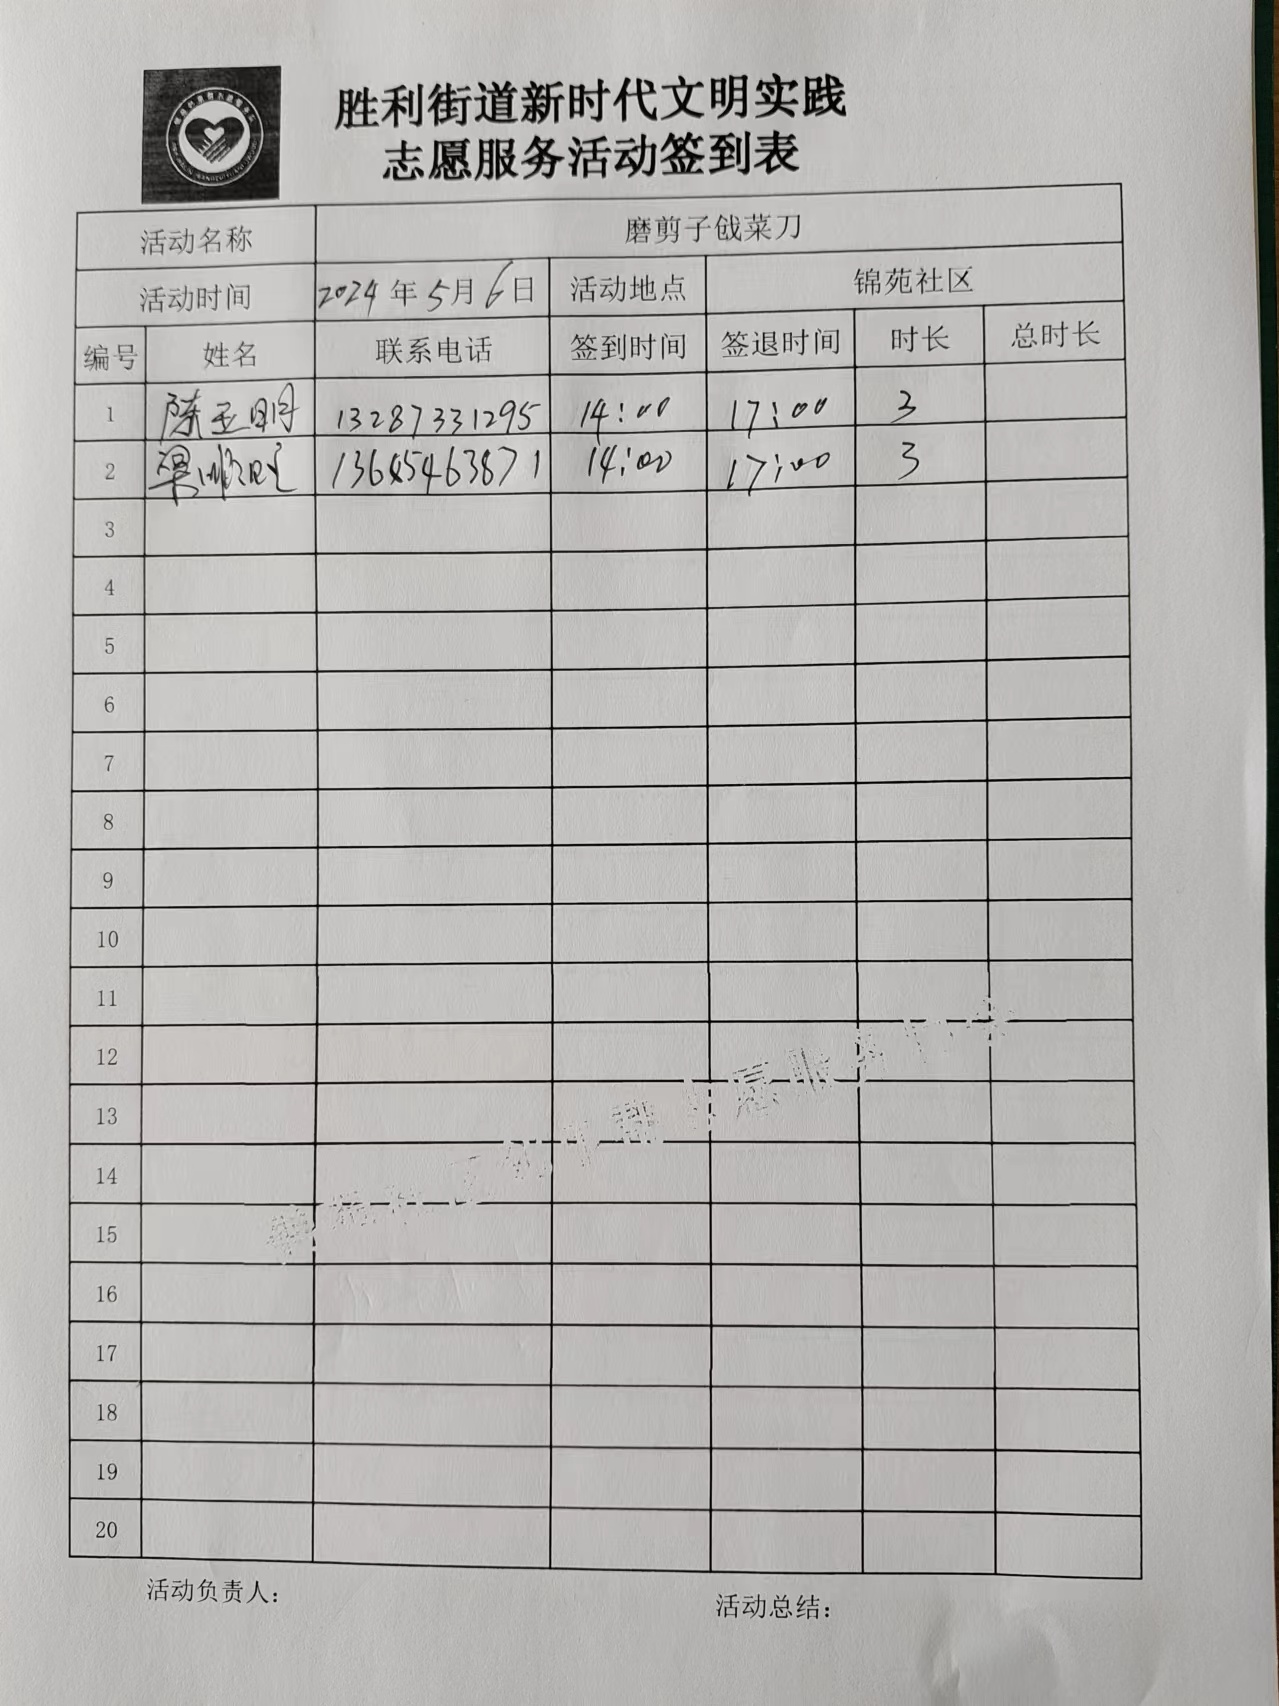 胜利街道新时代文明实践
志愿服务活动签到表
活动名称 磨剪子戗菜刀
活动时间 2024年5月6日 活动地点 锦苑社区
编号 姓名 联系电话 签到时间 签退时间 时长 总时长
1 陈玉明 13287331295 14:00 17:00 3
2 梁顺 13645463871 14:00 17:00 3
3
4
5
6
7
8
9
10
11
12
13
14
15
16
17
18
19
20
活动负责人: 活动总结: